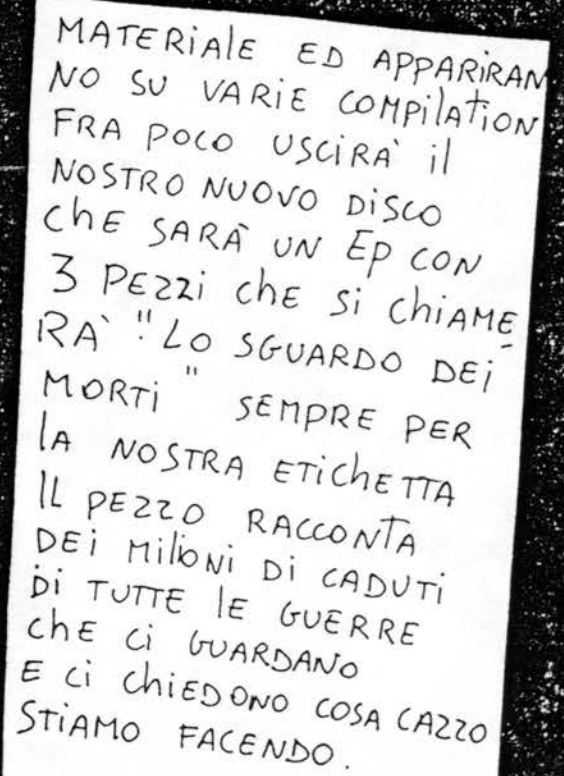 MATERIALE ED APPARIRAN
NO SU VARIE COMPILATION
FRA POCO USCIRÀ il
NOSTRO NUOVO DISCO
ChE SARÀ UN EP CON
3 PEZZI ChE Si ChiAME
RÀ "LO SGUARDO DEi
MORTi" SEMPRE PER
lA NOSTRA ETIChETTA
IL PEZZO RACCONTA
DEi MiliONi Di CADUTi
Di TUTTE lE GUERRE
ChE Ci GUARDANO
E Ci ChiEDONO COSA CAZZO
STiAMO FACENDO.